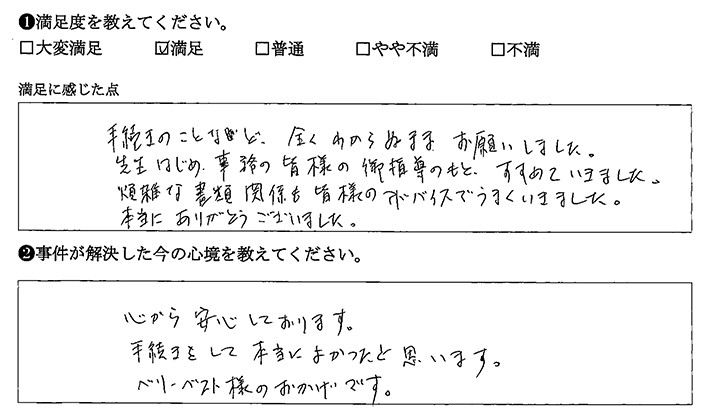 ❶満足度を教えてください。
□大変満足 ☑満足 □普通 □やや不満 □不満
満足に感じた点
手続きのことなど、全くわからぬまま お願いしました。
先生はじめ、事務の皆様の御指導のもと、すすめていきました。
煩雑な書類関係も皆様のアドバイスでうまくいきました。
本当にありがとうございました。
❷事件が解決した今の心境を教えてください。
心から安心しております。
手続きをして本当によかったと思います。
ベリーベスト様のおかげです。